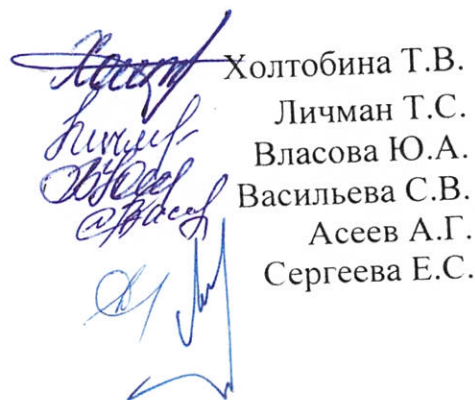 Холтобина Т.В.
Личман Т.С.
Власова Ю.А.
Васильева С.В.
Асеев А.Г.
Сергеева Е.С.